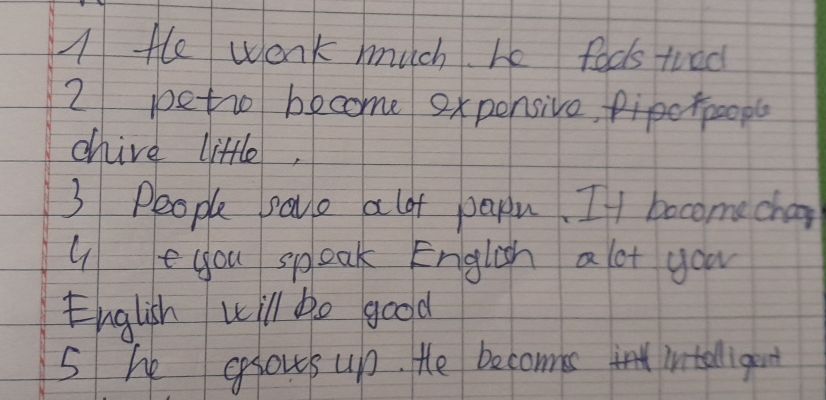 1 He work much. he feels tired
2 petro become expensive. people
drive little.
3 People save a lot paper. It become cheap
4 you speak English a lot your
English will be good
5 he grows up. He becomes intelligent